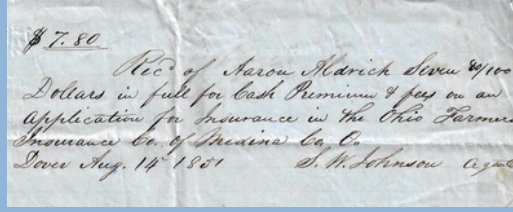 $7.80
Rec'd of Aaron Aldrich Seven 80/100
Dollars in full for Cash Premium & fees on an
Application for Insurance in the Ohio Farmers
Insurance Co. of Medina Co, O.
Dover Aug. 14 1851 S. W. Johnson Agent